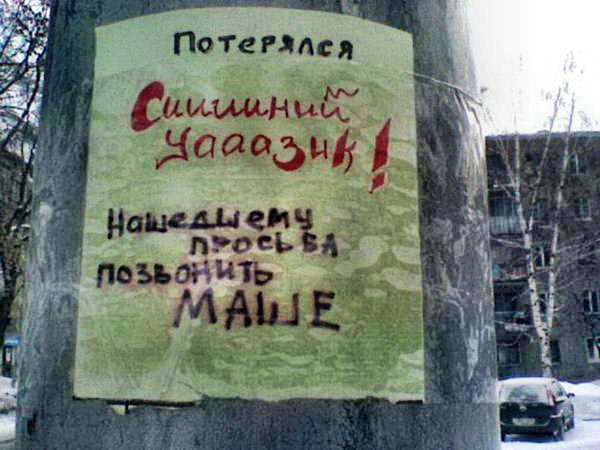 Потерялся
Сииииний
уааазик!
Нашедшему
просьба
позвонить
МАШЕ